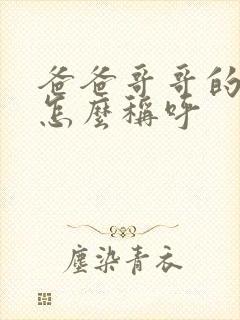 爸爸哥哥的
怎麼稱呼
塵染青衣